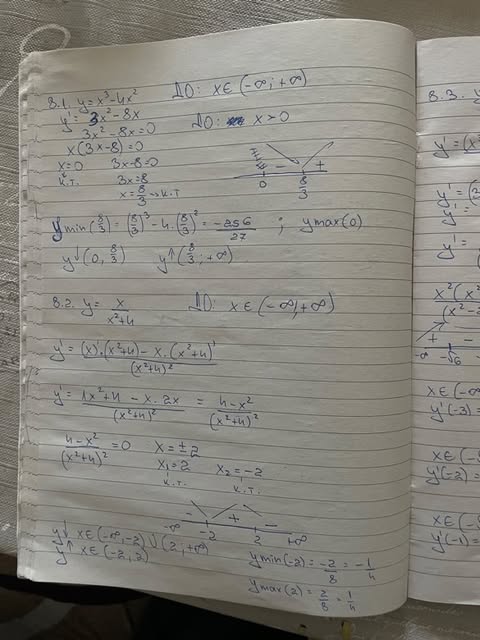 8.1. y = x³-4x² ДО: x∈(-∞; +∞)
y' = 3x²-8x
3x²-8x=0 ДО: x>0
x(3x-8)=0
x=0 3x-8=0
к.т. 3x=8
x=8/3 → к.т
- +
0 8/3
ymin(8/3)=(8/3)³-4.(8/3)²=-256/27 ; ymax(0)
y↓(0, 8/3) y↑(8/3; +∞)
8.2. y = x/(x²+4) ДО: x∈(-∞, +∞)
y' = ((x)'.(x²+4) - x.(x²+4)')/(x²+4)²
y' = (1x²+4 - x.2x)/(x²+4)² = (4-x²)/(x²+4)²
(4-x²)/(x²+4)² = 0 x=±2
x₁=2 x₂=-2
к.т. к.т.
- + -
-∞ -2 2 +∞
y↓ x∈(-∞,-2)∪(2,+∞)
y↑ x∈(-2, 2)
ymin(-2) = -2/8 = -1/4
ymax(2) = 2/8 = 1/4
8.3. y
y' = (x
y' = (2
y' =
y' =
x²(x²
(x²-2
+ -
-∞ -√6
x∈(-∞
y'(-3)=
x∈(-√
y'(-2)=
x∈(-√
y'(-1)=